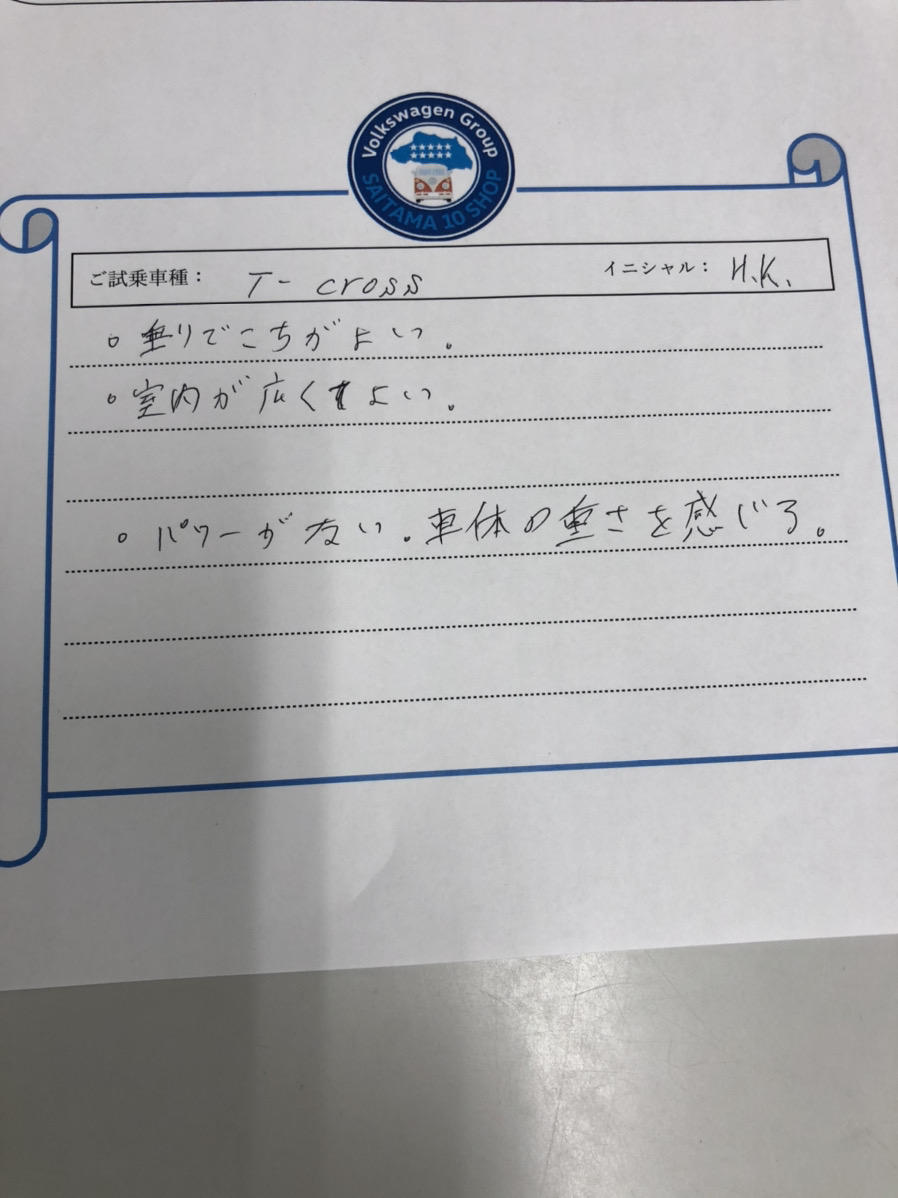 Volkswagen Group
SAITAMA 10 SHOP
ご試乗車種： T-cross イニシャル： H.K.
。乗りでこちがよい。
。室内が広くてよい。
。パワーがない。車体の重さを感じる。